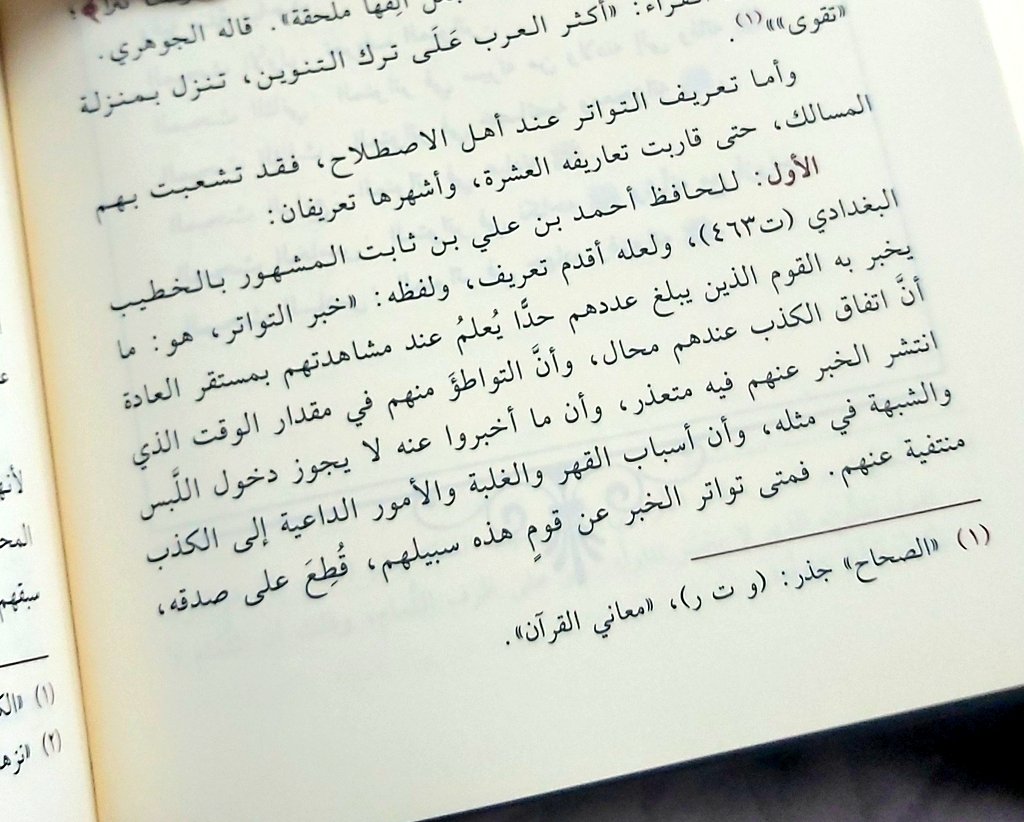 ألفها ملحقة». قاله الجوهري.
الفراء: «أكثر العرب عَلَى ترك التنوين، تنزل بمنزلة
«تقوى»»(١).
وأما تعريف التواتر عند أهل الاصطلاح، فقد تشعبت بهم
المسالك، حتى قاربت تعاريفه العشرة، وأشهرها تعريفان:
الأول: للحافظ أحمد بن علي بن ثابت المشهور بالخطيب
البغدادي (ت٤٦٣)، ولعله أقدم تعريف، ولفظه: «خبر التواتر، هو: ما
يخبر به القوم الذين يبلغ عددهم حدًّا يُعلمُ عند مشاهدتهم بمستقر العادة
أنَّ اتفاق الكذب عندهم محال، وأنَّ التواطؤَ منهم في مقدار الوقت الذي
انتشر الخبر عنهم فيه متعذر، وأن ما أخبروا عنه لا يجوز دخول اللَّبس
والشبهة في مثله، وأن أسباب القهر والغلبة والأمور الداعية إلى الكذب
منتفية عنهم. فمتى تواتر الخبر عن قومٍ هذه سبيلهم، قُطِعَ على صدقه،
(١) «الصحاح» جذر: (و ت ر)، «معاني القرآن».
سبقهم
(١)
(٢)